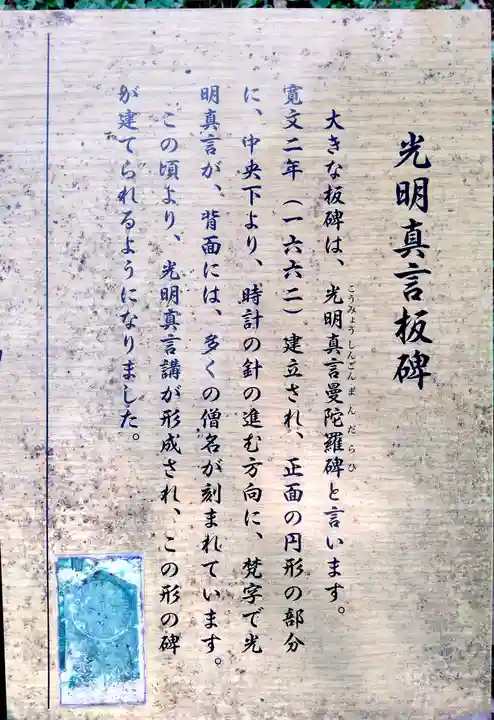 光明真言板碑
大きな板碑は、光明真言曼陀羅碑と言います。
こうみょうしんごんまんだらひ
寛文二年（一六六二）建立され、正面の円形の部分
に、中央下より、時計の針の進む方向に、梵字で光
明真言が、背面には、多くの僧名が刻まれています。
この頃より、光明真言講が形成され、この形の碑
が建てられるようになりました。